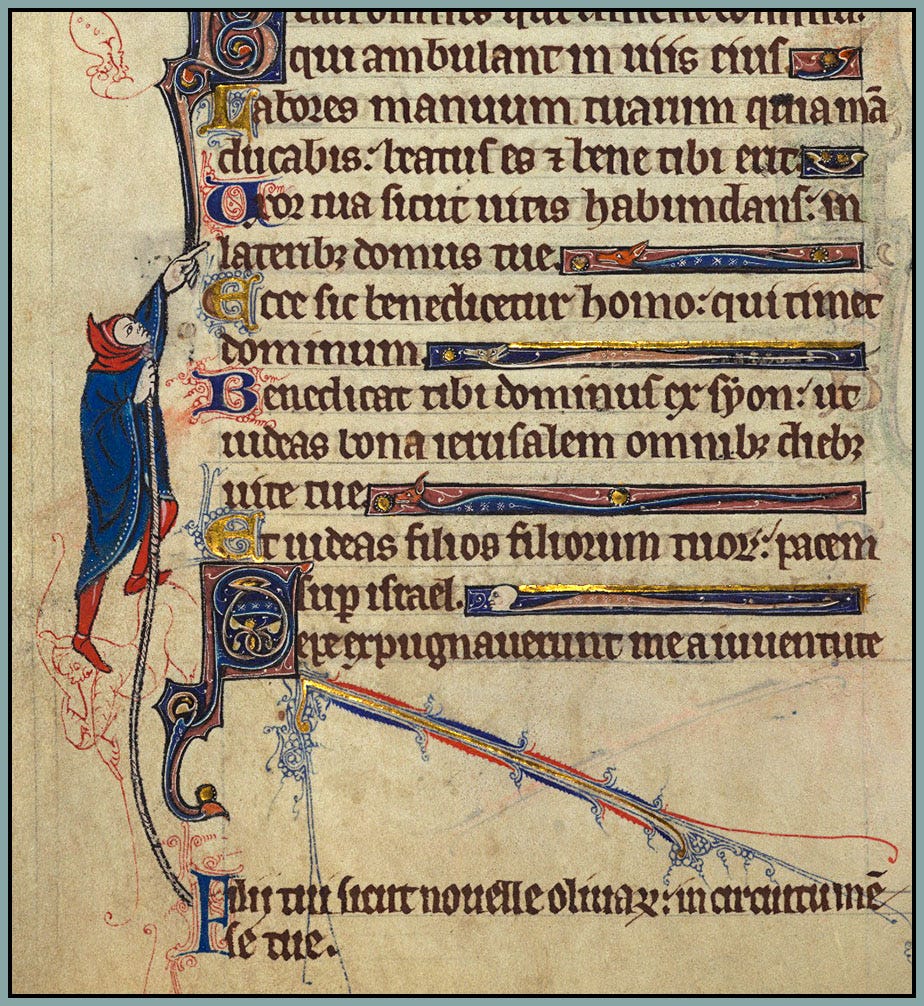 Beati omnes qui timent dominum.
qui ambulant in uiis eius.
Labores manuum tuarum quia mā
ducabis: beatus es ⁊ bene tibi erit.
Uxor tua sicut uitis habundans: in
lateribꝫ domus tue.
Ecce sic benedicetur homo: qui timet
dominum.
Benedicat tibi dominus ex syon: ut
uideas bona ierusalem omnibꝫ diebꝫ
uite tue.
Et uideas filios filiorum tuoꝝ: pacem
suꝑ israel.
Sepe expugnauerunt me a iuuentute
Filii tui sicut nouelle oliuaꝝ: in circuitu mē
se tue.